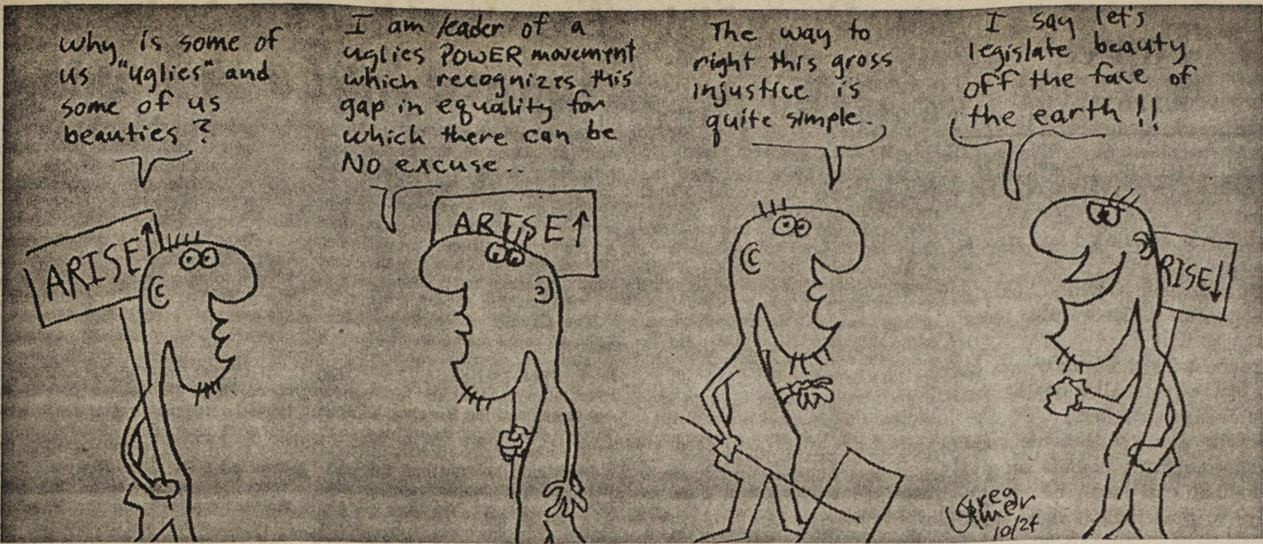 why is some of
us "uglies" and
some of us
beauties?
ARISE↑
I am leader of a
uglies POWER movement
which recognizes this
gap in equality for
which there can be
NO excuse..
ARISE↑
The way to
right this gross
injustice is
quite simple.
I say let's
legislate beauty
off the face of
the earth!!
RISE↓
Greg
10/24